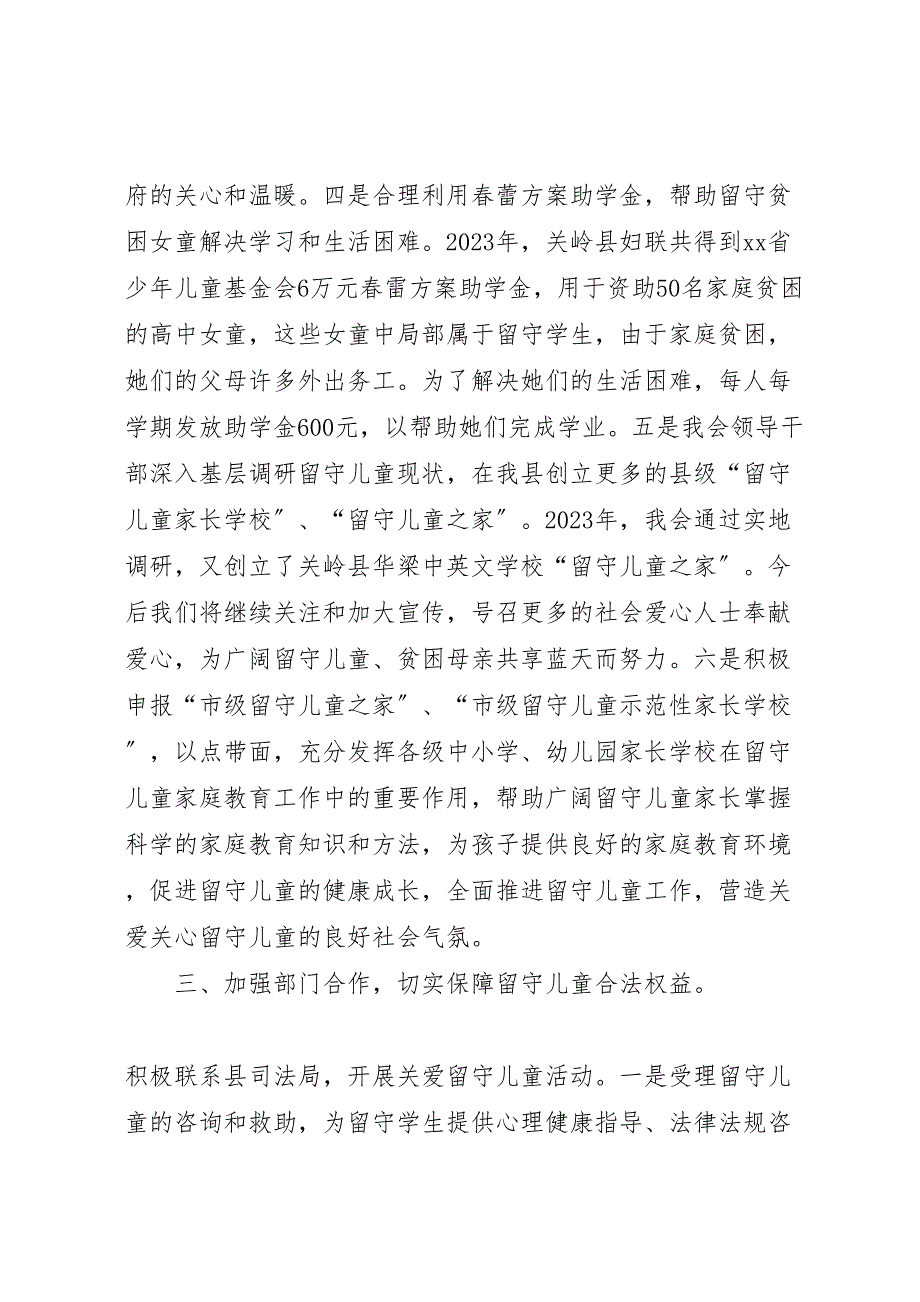 府的关心和温暖。四是合理利用春蕾方案助学金，帮助留守贫
困女童解决学习和生活困难。2023年，关岭县妇联共得到xx省
少年儿童基金会6万元春雷方案助学金，用于资助50名家庭贫困
的高中女童，这些女童中局部属于留守学生，由于家庭贫困，
她们的父母许多外出务工。为了解决她们的生活困难，每人每
学期发放助学金600元，以帮助她们完成学业。五是我会领导干
部深入基层调研留守儿童现状，在我县创立更多的县级“留守
儿童家长学校〞、“留守儿童之家〞。2023年，我会通过实地
调研，又创立了关岭县华梁中英文学校“留守儿童之家〞。今
后我们将继续关注和加大宣传，号召更多的社会爱心人士奉献
爱心，为广阔留守儿童、贫困母亲共享蓝天而努力。六是积极
申报“市级留守儿童之家〞、“市级留守儿童示范性家长学校
〞，以点带面，充分发挥各级中小学、幼儿园家长学校在留守
儿童家庭教育工作中的重要作用，帮助广阔留守儿童家长掌握
科学的家庭教育知识和方法，为孩子提供良好的家庭教育环境
，促进留守儿童的健康成长，全面推进留守儿童工作，营造关
爱关心留守儿童的良好社会气氛。
三、加强部门合作，切实保障留守儿童合法权益。
积极联系县司法局，开展关爱留守儿童活动。一是受理留守儿
童的咨询和救助，为留守学生提供心理健康指导、法律法规咨